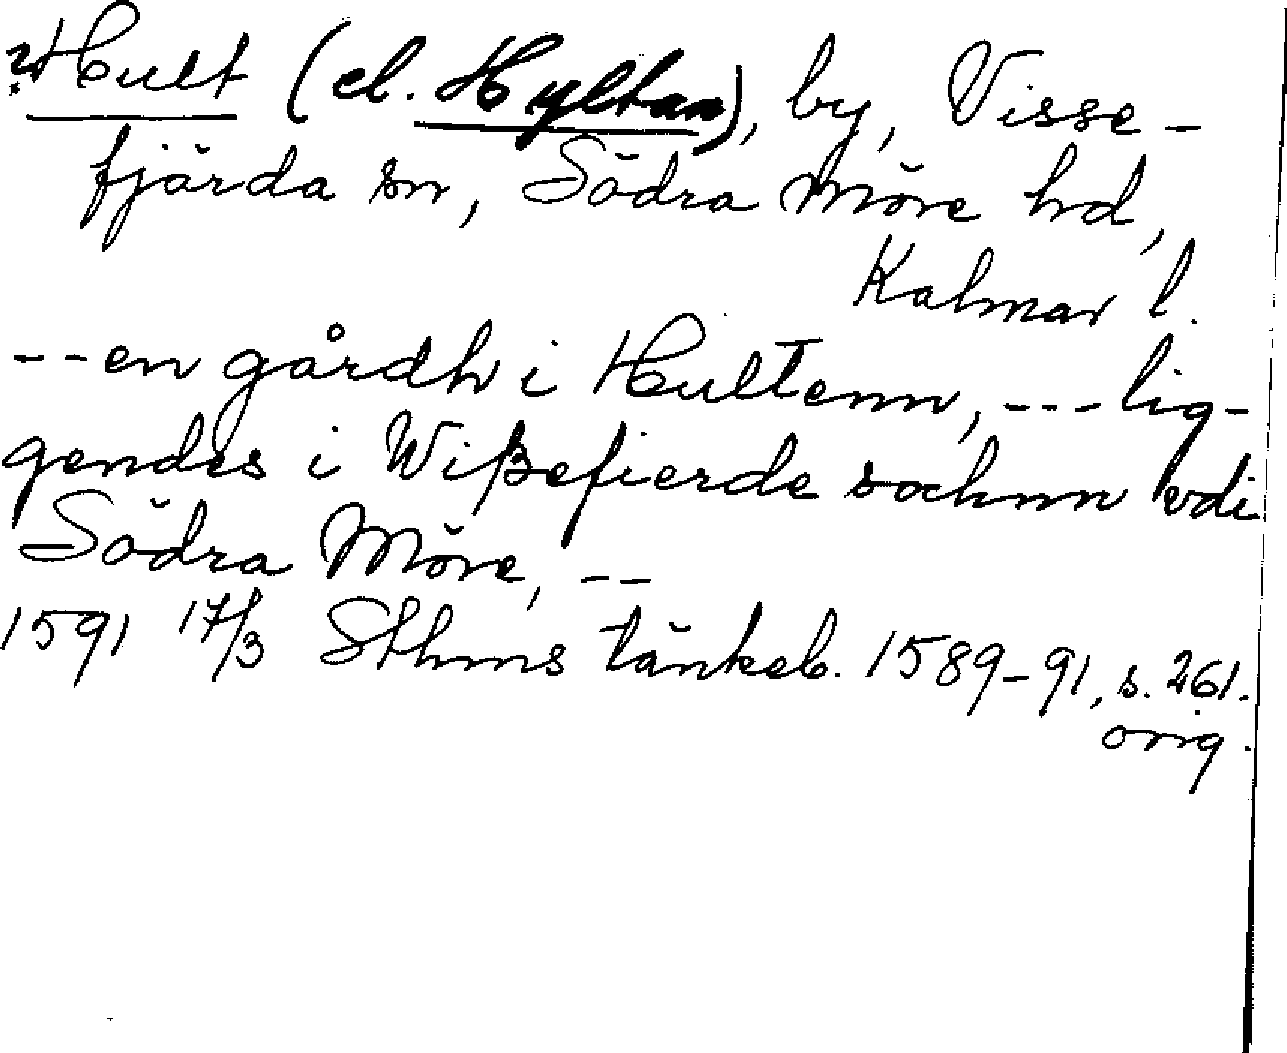 ?Hult (el. Hyltan), by, Visse-
fjärda sn, Södra Möre hd,
Kalmar l.
--en gårdh i Hultenn, --- lig-
gendes i Wißefierde sochnn vdi
Södra Möre, --
1591 17/3 Sthms tänkeb. 1589-91, s. 261.
orig.